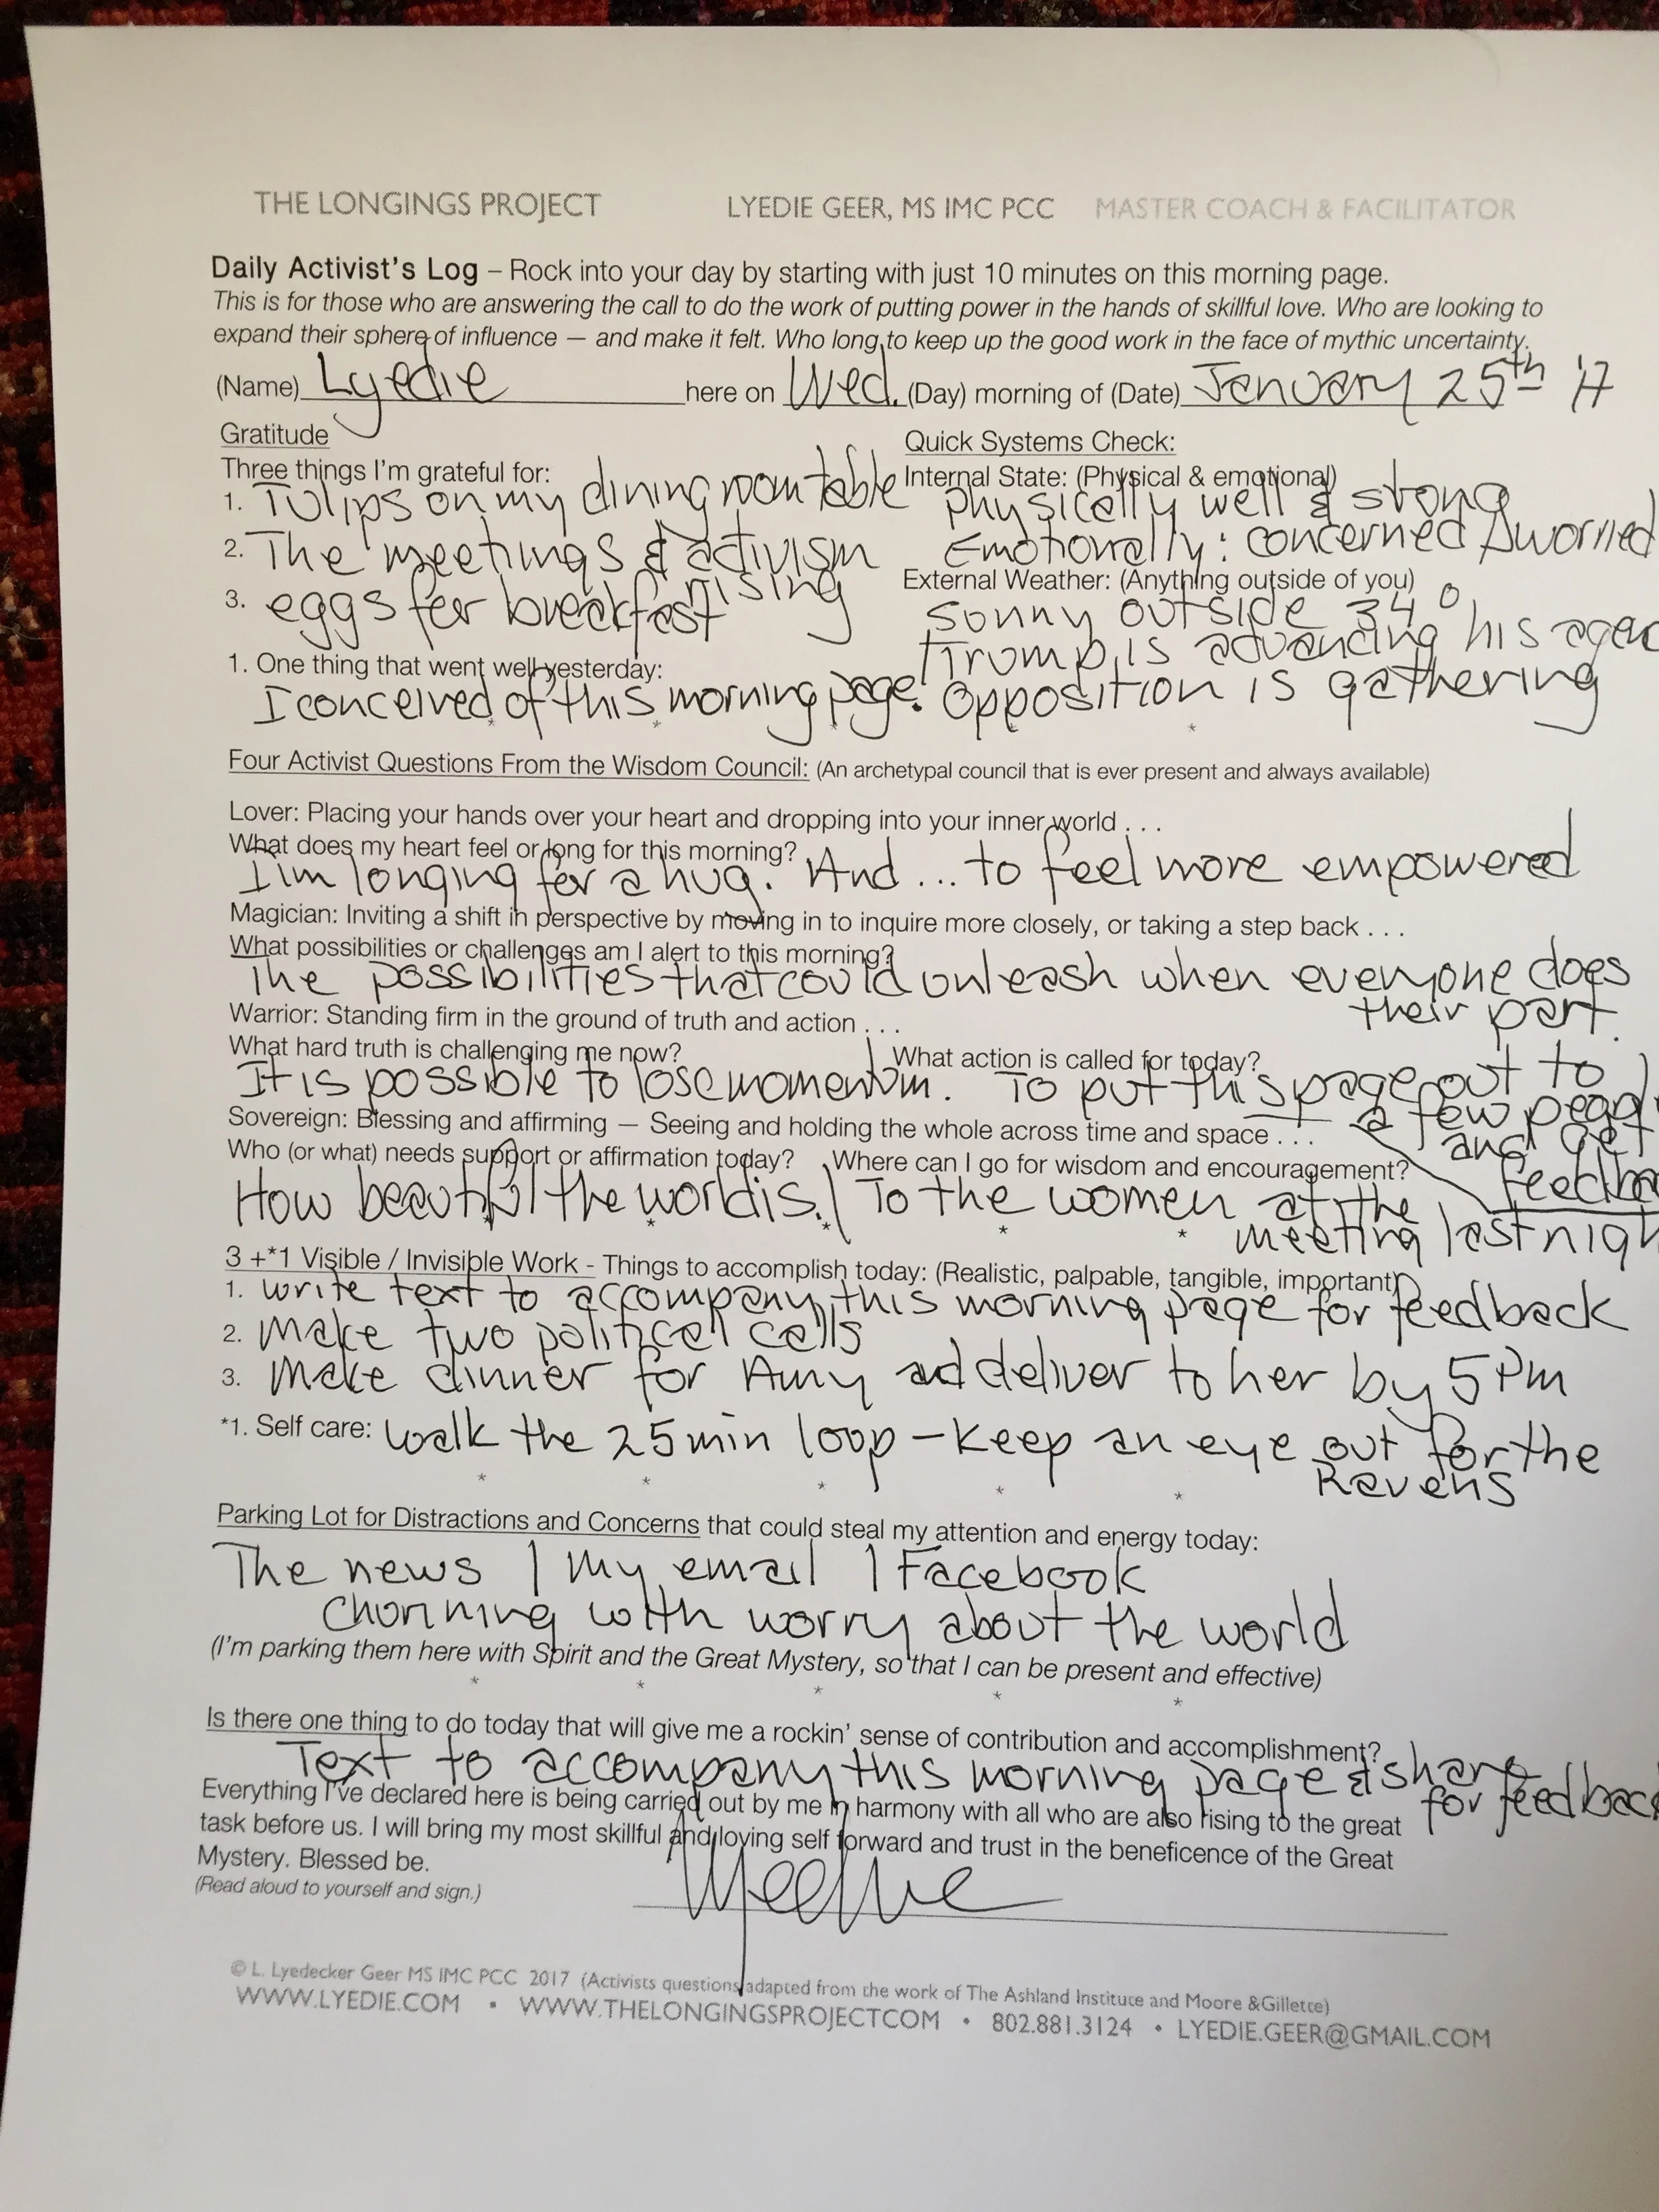 THE LONGINGS PROJECT LYEDIE GEER, MS IMC PCC MASTER COACH & FACILITATOR
Daily Activist's Log – Rock into your day by starting with just 10 minutes on this morning page.
This is for those who are answering the call to do the work of putting power in the hands of skillful love. Who are looking to
expand their sphere of influence — and make it felt. Who long to keep up the good work in the face of mythic uncertainty.
(Name) Lyedie here on Wed. (Day) morning of (Date) January 25th '17
Gratitude
Three things I'm grateful for:
1. Tulips on my dining room table
2. The meetings & activism
rising
3. eggs for breakfast
1. One thing that went well yesterday:
I conceived of this morning page!
Quick Systems Check:
Internal State: (Physical & emotional)
physically well & strong
Emotionally: concerned & worried
External Weather: (Anything outside of you)
sunny outside 34°
Trump is advancing his
Opposition is gathering
* * * *
Four Activist Questions From the Wisdom Council: (An archetypal council that is ever present and always available)
Lover: Placing your hands over your heart and dropping into your inner world . . .
What does my heart feel or long for this morning?
I'm longing for a hug. And ... to feel more empowered
Magician: Inviting a shift in perspective by moving in to inquire more closely, or taking a step back . . .
What possibilities or challenges am I alert to this morning?
The possibilities that could unleash when everyone does
their part.
Warrior: Standing firm in the ground of truth and action . . .
What hard truth is challenging me now? What action is called for today?
It is possible to lose momentum. To put this page out to
a few
and get
Sovereign: Blessing and affirming — Seeing and holding the whole across time and space . . .
Who (or what) needs support or affirmation today? Where can I go for wisdom and encouragement?
How beautiful the world is. To the women at the
meeting last
* * * *
3 +*1 Visible / Invisible Work - Things to accomplish today: (Realistic, palpable, tangible, important)
1. write text to accompany this morning page for feedback
2. make two political calls
3. Make dinner for Amy and deliver to her by 5 PM
*1. Self care: walk the 25 min loop – keep an eye out for the
Ravens
* * * * *
Parking Lot for Distractions and Concerns that could steal my attention and energy today:
The news | My email | Facebook
Churning with worry about the world
(I'm parking them here with Spirit and the Great Mystery, so that I can be present and effective)
* * * * *
Is there one thing to do today that will give me a rockin' sense of contribution and accomplishment?
Text to accompany this morning page & share
for feedback
Everything I've declared here is being carried out by me in harmony with all who are also rising to the great
task before us. I will bring my most skillful and loving self forward and trust in the beneficence of the Great
Mystery. Blessed be.
(Read aloud to yourself and sign.) Lyedie
© L. Lyedecker Geer MS IMC PCC 2017 (Activists questions adapted from the work of The Ashland Institute and Moore &Gillette)
WWW.LYEDIE.COM • WWW.THELONGINGSPROJECTCOM • 802.881.3124 • LYEDIE.GEER@GMAIL.COM